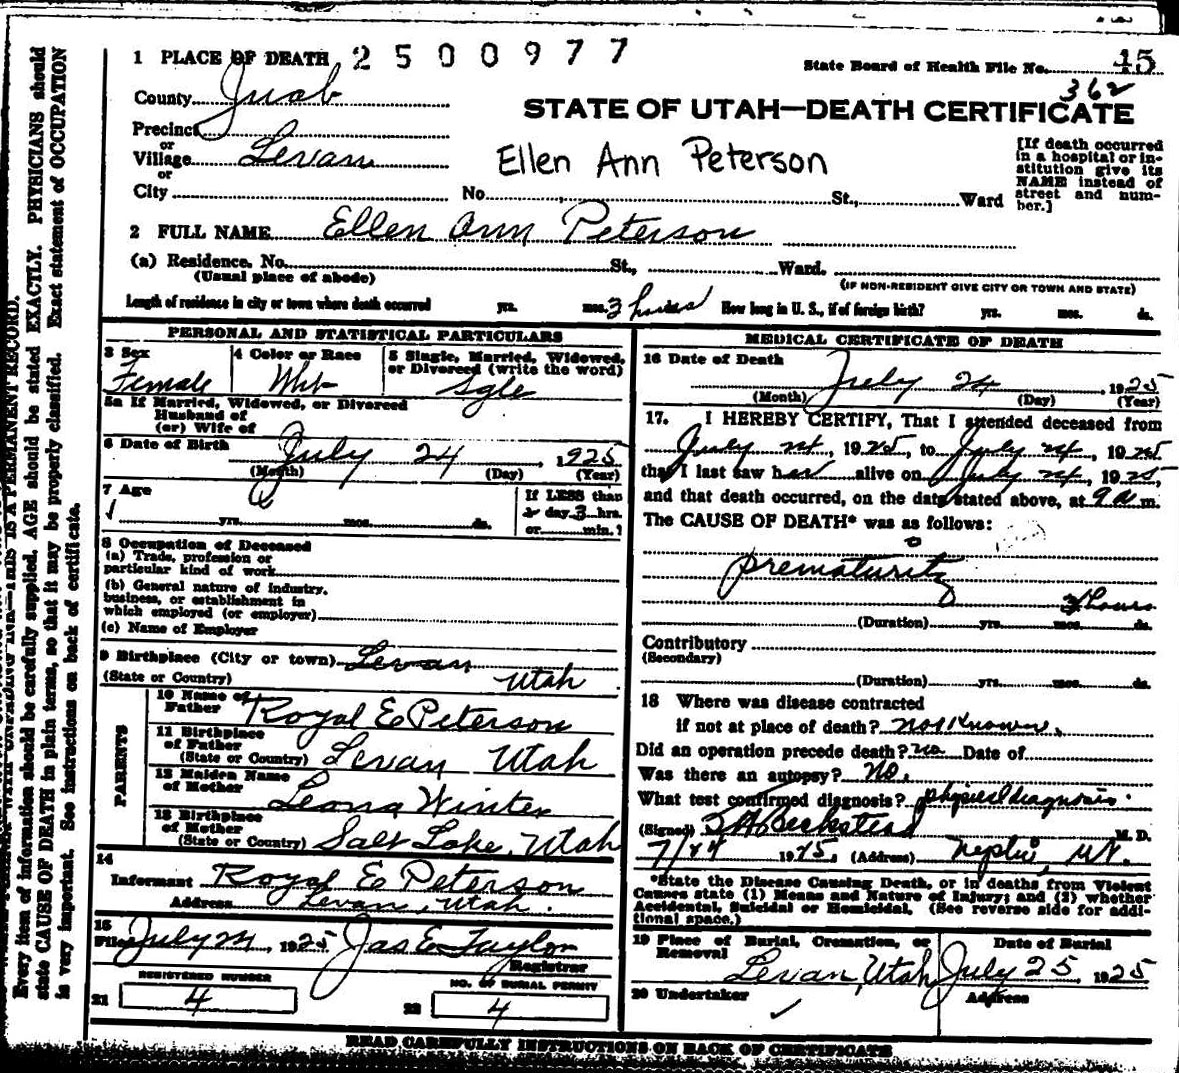 1 PLACE OF DEATH 2 5 0 0 9 7 7
State Board of Health File No. 45
362
County Juab
STATE OF UTAH—DEATH CERTIFICATE
Precinct
or
Village Levan
or
City
Ellen Ann Peterson
No. St., Ward
[If death occurred
in a hospital or in-
stitution give its
NAME instead of
street and num-
ber.]
2 FULL NAME Ellen Ann Peterson
(a) Residence. No. St., Ward.
(Usual place of abode)
(IF NON-RESIDENT GIVE CITY OR TOWN AND STATE)
Length of residence in city or town where death occurred yrs. mos. 3 ds. How long in U. S., if of foreign birth? yrs. mos. ds.
PERSONAL AND STATISTICAL PARTICULARS
3 Sex
Female
4 Color or Race
Wht
5 Single, Married, Widowed,
or Divorced (write the word)
Sgle
5a If Married, Widowed, or Divorced
Husband of
(or) Wife of
6 Date of Birth July 24, 1925
(Month) (Day) (Year)
7 Age
yrs. mos. ds.
If LESS than
day 3 hrs.
or min.?
8 Occupation of Deceased
(a) Trade, profession or
particular kind of work
(b) General nature of industry,
business, or establishment in
which employed (or employer)
(c) Name of Employer
9 Birthplace (City or town) Levan
(State or Country) Utah
PARENTS
10 Name of
Father Royal E Peterson
11 Birthplace
of Father
(State or Country) Levan Utah
12 Maiden Name
of Mother Leona Winter
13 Birthplace
of Mother
(State or Country) Salt Lake, Utah
14
Informant Royal E Peterson
Address Levan, Utah.
15
Filed July 24, 1925 Jas E Taylor
Registrar
REGISTERED NUMBER
21 4
NO. OF BURIAL PERMIT
22 4
MEDICAL CERTIFICATE OF DEATH
16 Date of Death July 24, 1925
(Month) (Day) (Year)
17. I HEREBY CERTIFY, That I attended deceased from
July 24, 1925, to July 24, 1925
that I last saw her alive on July 24, 1925,
and that death occurred, on the date stated above, at 9 a m.
The CAUSE OF DEATH* was as follows:
prematurity
3 hours
(Duration) yrs. mos. ds.
Contributory
(Secondary)
(Duration) yrs. mos. ds.
18 Where was disease contracted
if not at place of death? not known.
Did an operation precede death? no Date of
Was there an autopsy? No.
What test confirmed diagnosis? physical diagnosis.
(Signed) Beckstead M. D.
7/24 1925, (Address) Nephi, Ut.
*State the Disease Causing Death, or in deaths from Violent
Causes state (1) Means and Nature of Injury; and (2) whether
Accidental, Suicidal or Homicidal. (See reverse side for addi-
tional space.)
19 Place of Burial, Cremation, or
Removal
Date of Burial
Levan, Utah July 25, 1925
20 Undertaker
Address
READ CAREFULLY INSTRUCTIONS ON BACK OF CERTIFICATE
Every item of information should be carefully supplied. AGE should be stated EXACTLY. PHYSICIANS should
state CAUSE OF DEATH in plain terms, so that it may be properly classified. Exact statement of OCCUPATION
is very important. See instructions on back of certificate.
THIS IS A PERMANENT RECORD.